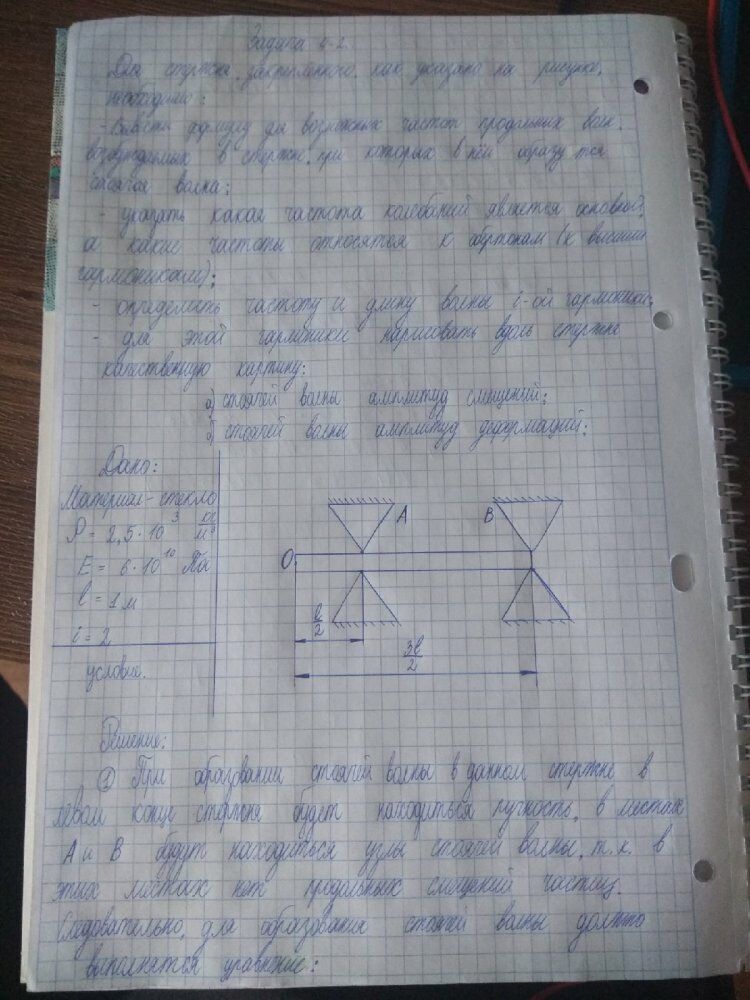 Задача 4-2.
Для стержня, закрепленного, как указано на рисунке,
необходимо:
- Вывести формулу для возможных частот продольных волн,
возбуждаемых в стержне, при которых в нём образуется
стоячая волна;
- указать какая частота колебаний является основной,
а какие частоты относятся к обертонам (к высшим
гармоникам);
- определить частоту и длину волны i-ой гармоники;
- для этой гармоники нарисовать вдоль стержня
качественную картину:
а) стоячей волны амплитуд смещений;
б) стоячей волны амплитуд деформаций;
Дано:
Материал - стекло
ρ = 2,5·10³ кг/м³
E = 6·10¹⁰ Па
l = 1 м
i = 2
условие.
A
B
O
l/2
3l/2
Решение:
① При образовании стоячей волны в данном стержне в
левом конце стержня будет находиться пучность, в местах
A и B будут находиться узлы стоячей волны, т.к. в
этих местах нет продольных смещений частиц.
Следовательно, для образования стоячей волны должно
выполнятся уравнение: